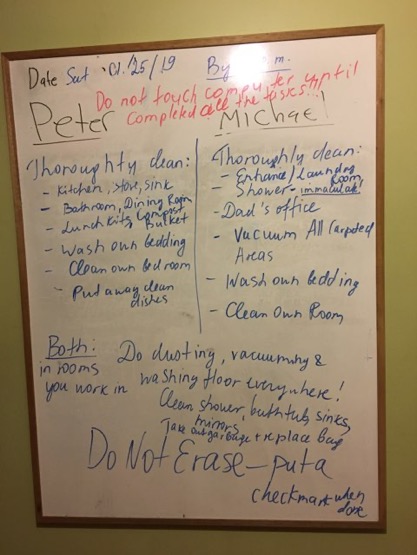 Date Sat 01/25/19 By m.
Do not touch computer until
completed all the tasks!..
Peter
Michael
Thoroughty clean:
- Kitchen, stove, sink
- Bathroom, Dining Room
- Lunch Kits, Compost Bucket
- Wash own bedding
- Clean own bedroom
- Put away clean
dishes
Thoroughly clean:
- Entrance/Laundry Room
- Shower - immaculate!
- Dad's office
- Vacuum All Carpeted
Areas
- Wash own bedding
- Clean Own Room
Both: Do dusting, vacuuming &
in rooms
you work in washing floor everywhere!
Clean shower, bathtub, sinks,
mirrors
Take out garbage + replace bag
Do Not Erase - put a
checkmark when
done